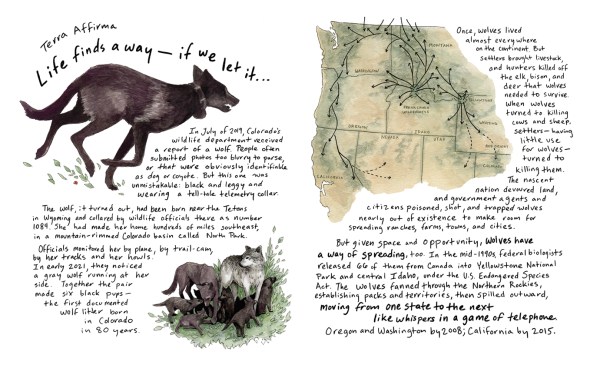 Terra Affirma
Life finds a way — if we let it...
In July of 2019, Colorado's
wildlife department received
a report of a wolf. People often
submitted photos too blurry to parse,
or that were obviously identifiable
as dog or coyote. But this one was
unmistakable: black and leggy and
wearing a tell-tale telemetry collar.
The wolf, it turned out, had been born near the Tetons
in Wyoming and collared by wildlife officials there as number
1084. She had made her home hundreds of miles southeast,
in a mountain-rimmed Colorado basin called North Park.
Officials monitored her by plane, by trail-cam,
by her tracks and her howls.
In early 2021, they noticed
a gray wolf running at her
side. Together the pair
made six black pups —
the first documented
wolf litter born
in Colorado
in 80 years.
MONTANA
WASHINGTON
OREGON
IDAHO
WYOMING
NEVADA
UTAH
CALIFORNIA
Once, wolves lived
almost everywhere
on the continent. But
settlers brought livestock,
and hunters killed off
the elk, bison, and
deer that wolves
needed to survive.
When wolves
turned to killing
cows and sheep,
settlers — having
little use
for wolves —
turned to
killing them.
The nascent
nation devoured land,
and government agents and
citizens poisoned, shot, and trapped wolves
nearly out of existence to make room for
spreading ranches, farms, towns, and cities.
But given space and opportunity, wolves have
a way of spreading, too. In the mid-1990s, federal biologists
released 66 of them from Canada into Yellowstone National
Park and central Idaho, under the U.S. Endangered Species
Act. The wolves fanned through the Northern Rockies,
establishing packs and territories, then spilled outward,
moving from one state to the next
like whispers in a game of telephone.
Oregon and Washington by 2008; California by 2015.